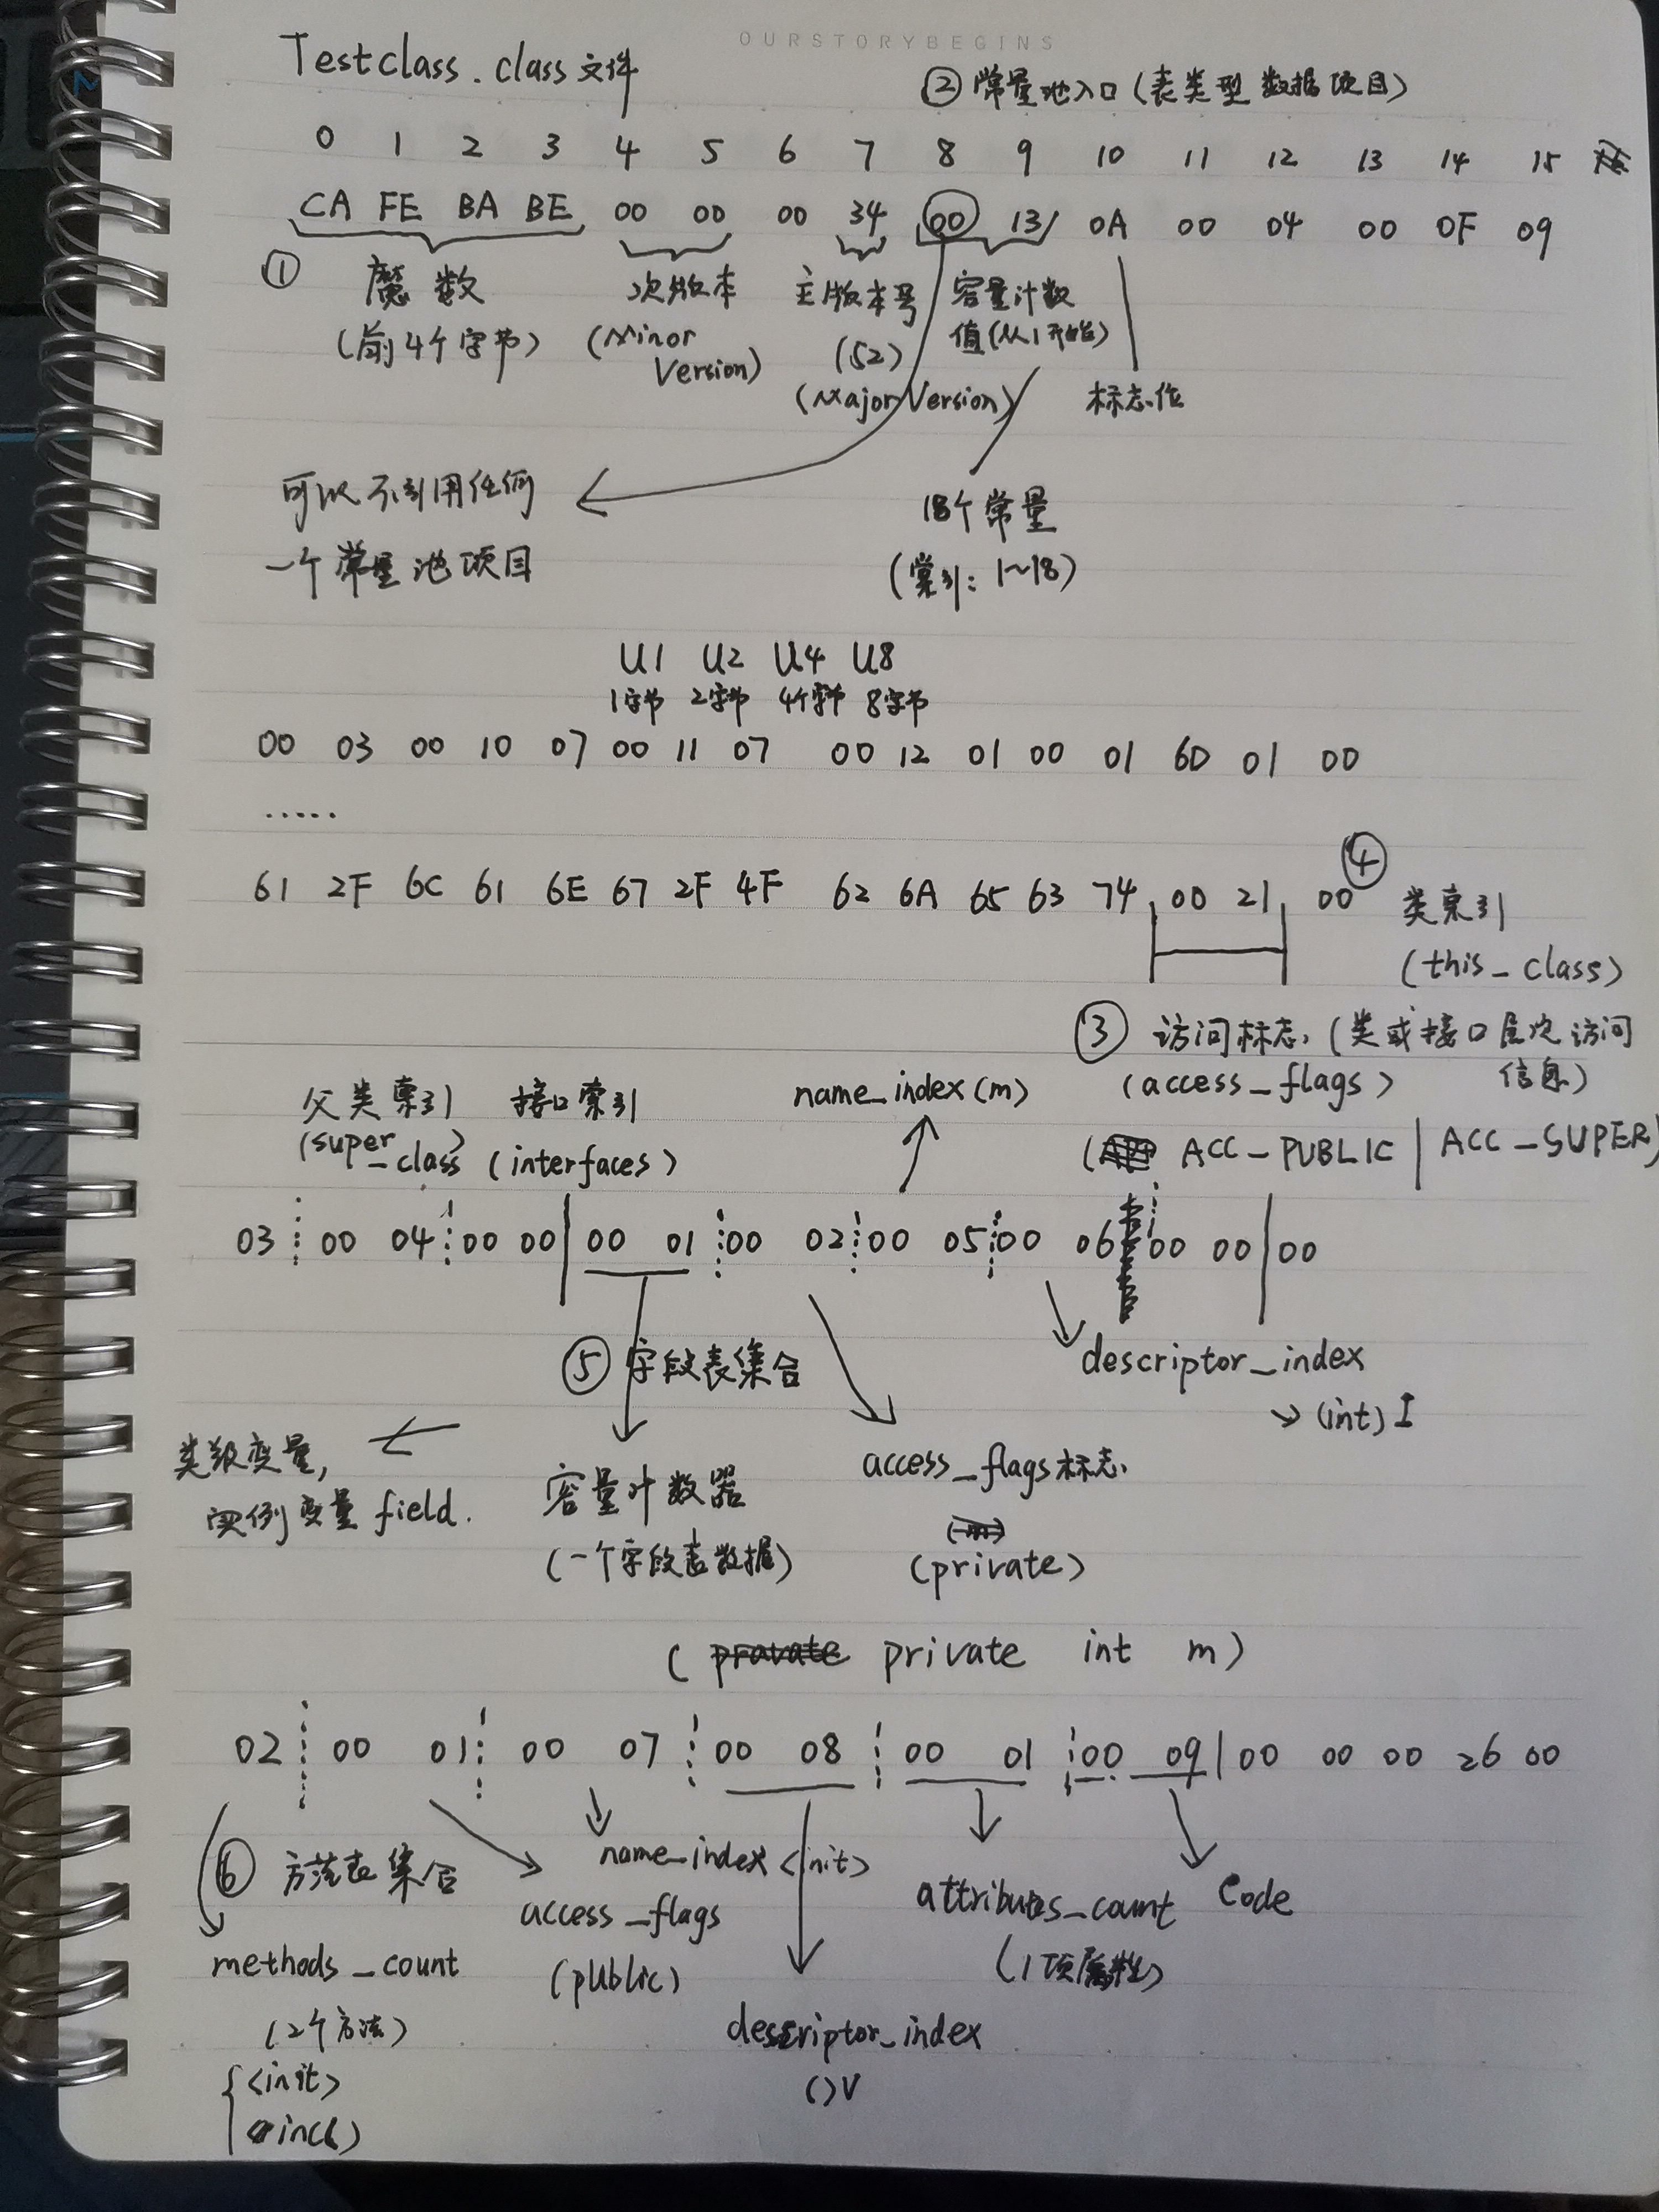 OURSTORYBEGINS
Testclass.class文件
② 常量池入口(表类型数据项目)
0 1 2 3 4 5 6 7 8 9 10 11 12 13 14 15
CA FE BA BE 00 00 00 34 00 13 0A 00 04 00 0F 09
① 魔数 次版本 主版本号 容量计数
(前4个字节) (Minor Version) (52) 值(从1开始)
(Major Version) 标志位
可以不引用任何 18个常量
一个常量池项目 (索引:1~18)
U1 U2 U4 U8
1字节 2字节 4个字节 8字节
00 03 00 10 07 00 11 07 00 12 01 00 01 6D 01 00
.....
61 2F 6C 61 6E 67 2F 4F 62 6A 65 63 74 00 21 00 ④ 类索引
(this_class)
③ 访问标志(类或接口层次访问
(access_flags) 信息)
父类索引 接口索引 name_index(m)
(super_class) (interfaces) (ACC_PUBLIC | ACC_SUPER)
03 00 04 00 00 00 01 00 02 00 05 00 06 00 00 00
⑤ 字段表集合 descriptor_index
→ (int) I
类级变量, access_flags标志
实例变量 field. 容量计数器
(一个字段表数据) (private)
(pravate private int m)
02 00 01 00 07 00 08 00 01 00 09 00 00 00 26 00
⑥ 方法表集合 name_index <init>
access_flags attributes_count Code
methods_count (public) (1项属性)
(2个方法) descriptor_index
<init> ()V
inc()